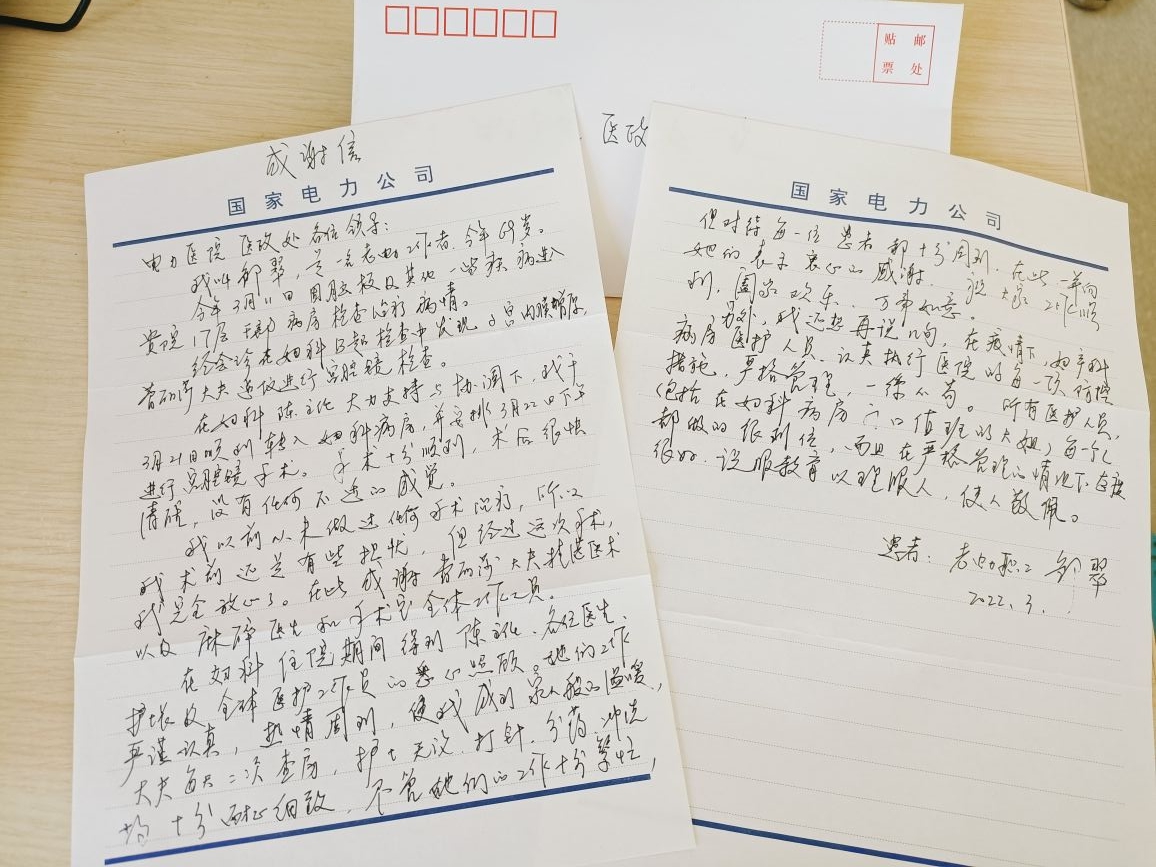 贴 邮
票 处
医政
感谢信
国家电力公司
电力医院 医政处 各位领导:
我叫 邹翠,是一名老电力工作者.今年69岁。
今年3月11日 因 及其他一些疾病进入
贵院17层 干部病房检查治疗病情。
经会诊在妇科B超检查中发现子宫内膜增厚,
大夫建议进行宫腔镜检查。
在妇科 陈主任 大力支持与协调下,我于
3月21日顺利转入妇科病房,并安排3月22日下午
进行宫腔镜手术。手术十分顺利,术后很快
清醒,没有任何不适的感觉。
我以前从未做过任何手术治疗,所以
我术前还是有些担忧,但经过这次手术,
我完全放心了。在此感谢 大夫 医术
以及 麻醉医生和手术室全体工作人员。
在妇科住院期间得到陈主任、各位医生、
护士 及全体医护工作人员的悉心照顾。她们工作
严谨认真,热情周到,使我感到家人般的温暖,
大夫每天二次查房,护士 打针、分药、冲洗
均十分耐心细致,不管她们的工作十分繁忙,
国家电力公司
但对待每一位患者都十分周到.在此一并向
她们表示衷心的感谢.祝大家工作顺
利,阖家欢乐、万事如意。
另外,我还想再说几句,在疫情下,妇产科
病房医护人员,认真执行医院的每一项防控
措施,严格管理,一丝不苟。所有医护人员,
(包括在妇科病房门口值班的大姐)每一个
都做的很到位,而且在严格管理的情况下态度
很好.说服教育以理服人,使人敬佩。
患者:老电力职工 邹翠
2022.3.